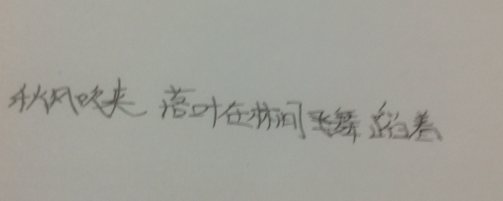 秋风吹来 落叶在林间飞舞